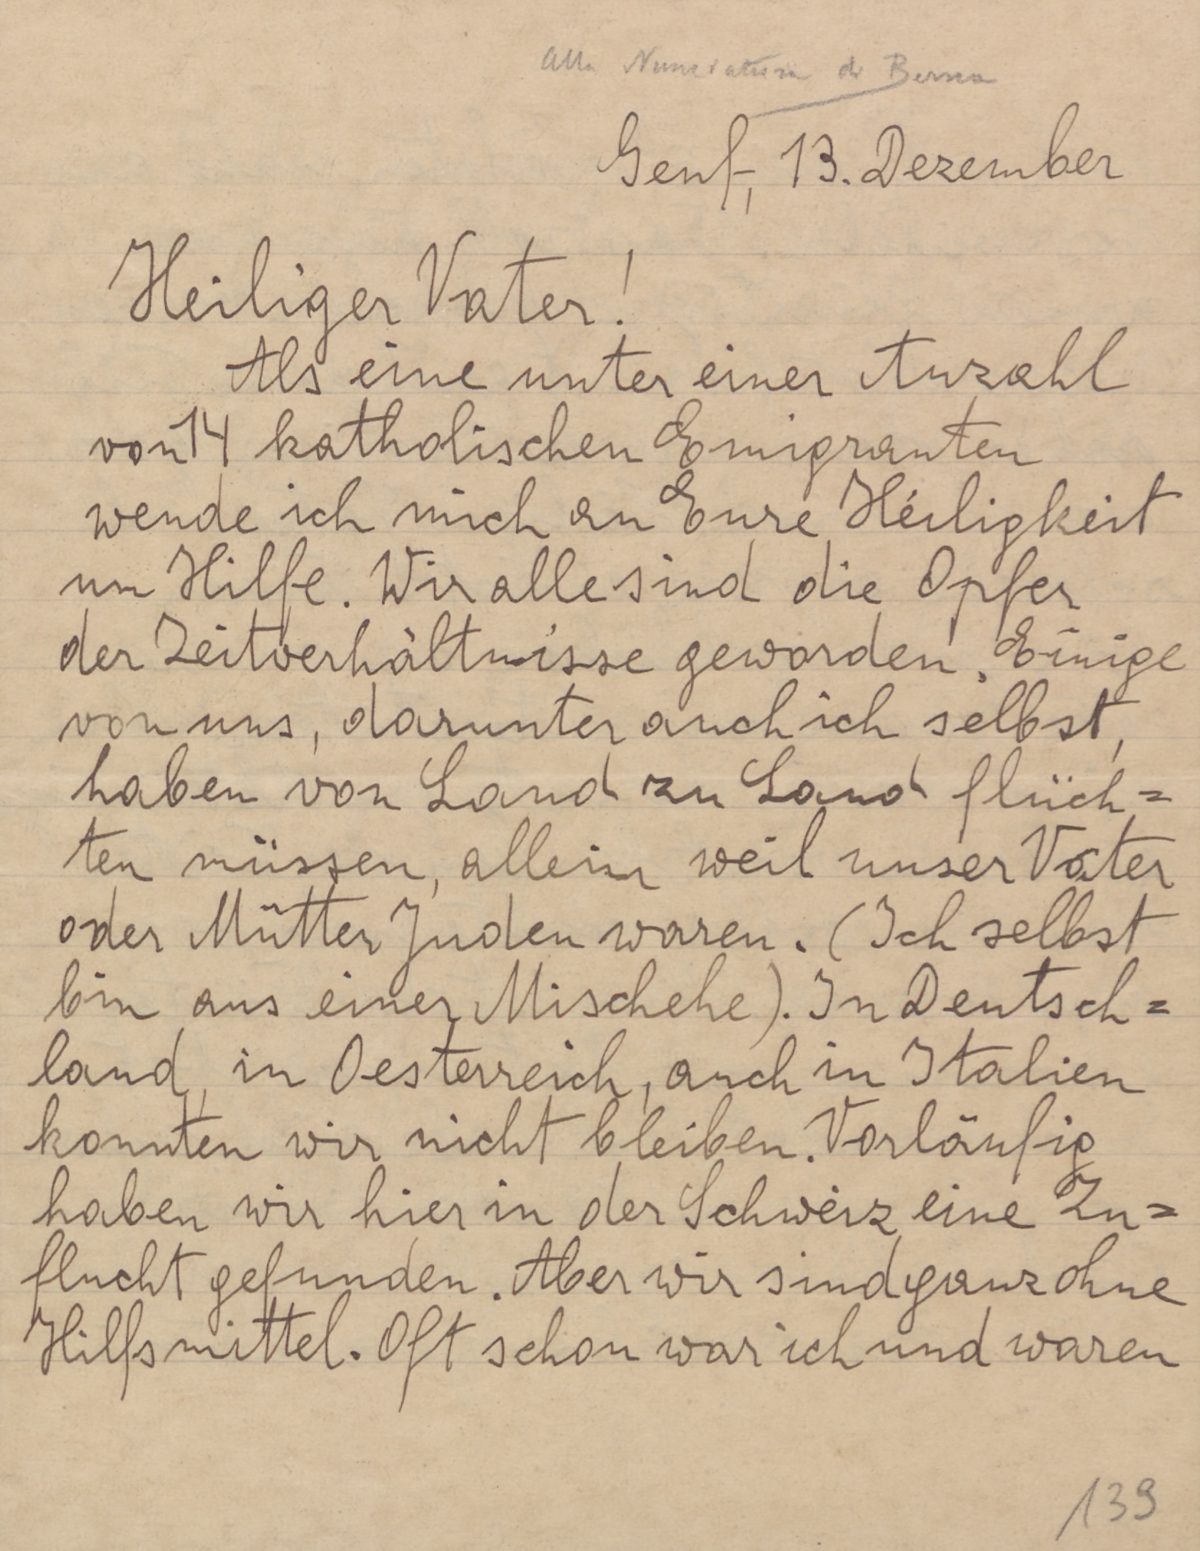 Alla Nunziatura di Berna
Genf, 13. Dezember
Heiliger Vater!
Als eine unter einer Anzahl
von 14 katholischen Emigranten
wende ich mich an Eure Heiligkeit
um Hilfe. Wir alle sind die Opfer
der Zeitverhältnisse geworden. Einige
von uns, darunter auch ich selbst,
haben von Land zu Land flüch=
ten müssen, allein weil unser Vater
oder Mütter Juden waren. (Ich selbst
bin aus einer Mischehe). In Deutsch=
land, in Oesterreich, auch in Italien
konnten wir nicht bleiben. Vorläufig
haben wir hier in der Schweiz eine Zu=
flucht gefunden. Aber wir sind ganz ohne
Hilfsmittel. Oft schon war ich und waren
139